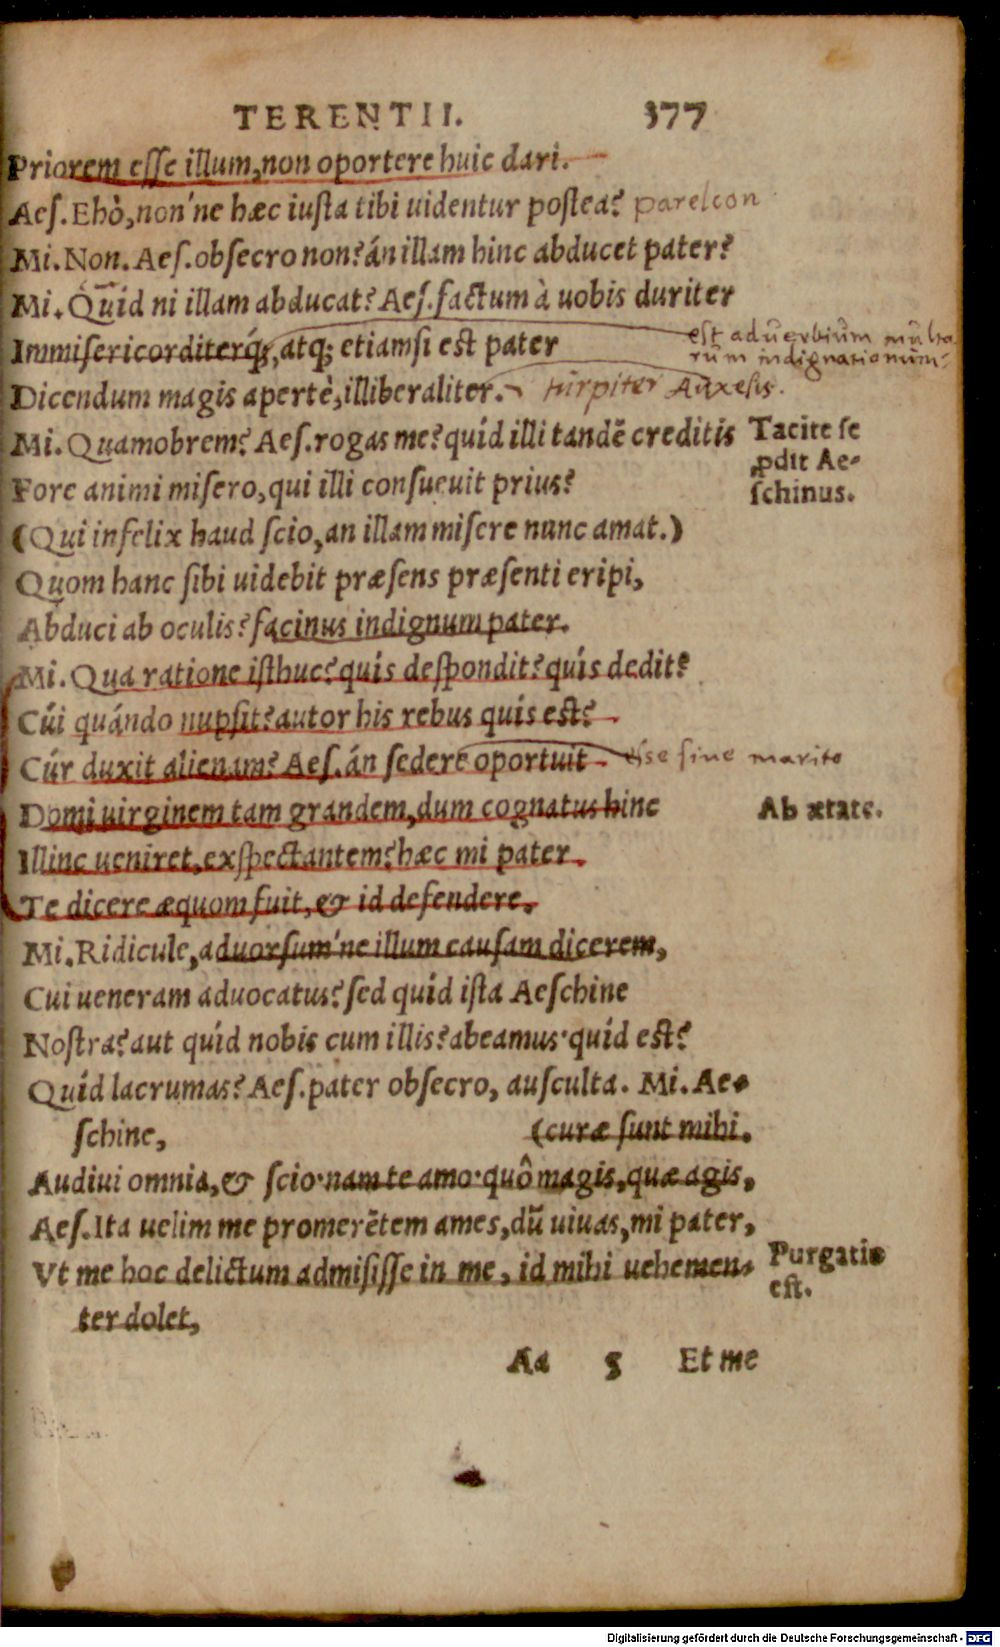 TERENTII. 377
Priorem esse illum, non oportere huic dari.
Aes. Ehò, non'ne hæc iusta tibi uidentur postea? parelcon
Mi. Non. Aes. obsecro non? án illam hinc abducet pater?
Mi. Quid ni illam abducat? Aes. factum à uobis duriter
Immisericorditerq́;, atq; etiamsi est pater
est aduerbium multa
rum indignationum
Dicendum magis apertè, illiberaliter. turpiter Auxesis.
Mi. Quamobrem? Aes. rogas me? quid illi tandē creditis
Tacite se
ꝓdit Ae-
schinus.
Fore animi misero, qui illi consueuit prius?
(Qui infelix haud scio, an illam misere nunc amat.)
Quom hanc sibi uidebit præsens præsenti eripi,
Abduci ab oculis? facinus indignum pater.
Mi. Qua ratione isthuc? quis despondit? quis dedit?
Cúi quándo nupsit? autor his rebus quis est?
Cúr duxit alienam? Aes. án sedere oportuit esse sine marito
Domi uirginem tam grandem, dum cognatus hinc
Ab ætate.
Illinc ueniret, exspectantem? hæc mi pater
Te dicere æquom fuit, & id defendere.
Mi. Ridicule, aduorsum'ne illum causam dicerem,
Cui ueneram aduocatus? sed quid ista Aeschine
Nostra? aut quíd nobis cum illis? abeamus· quíd est?
Quíd lacrumas? Aes. pater obsecro, ausculta. Mi. Ae-
schine, (curæ sunt mihi.
Audiui omnia, & scio· nam te amo· quô magis, quæ agis,
Aes. Ita uelim me promerētem ames, dū uiuas, mi pater,
Vt me hoc delictum admisisse in me, id mihi uehemen-
Purgatio
est.
ter dolet,
Aa 5 Et me
Digitalisierung gefördert durch die Deutsche Forschungsgemeinschaft - DFG